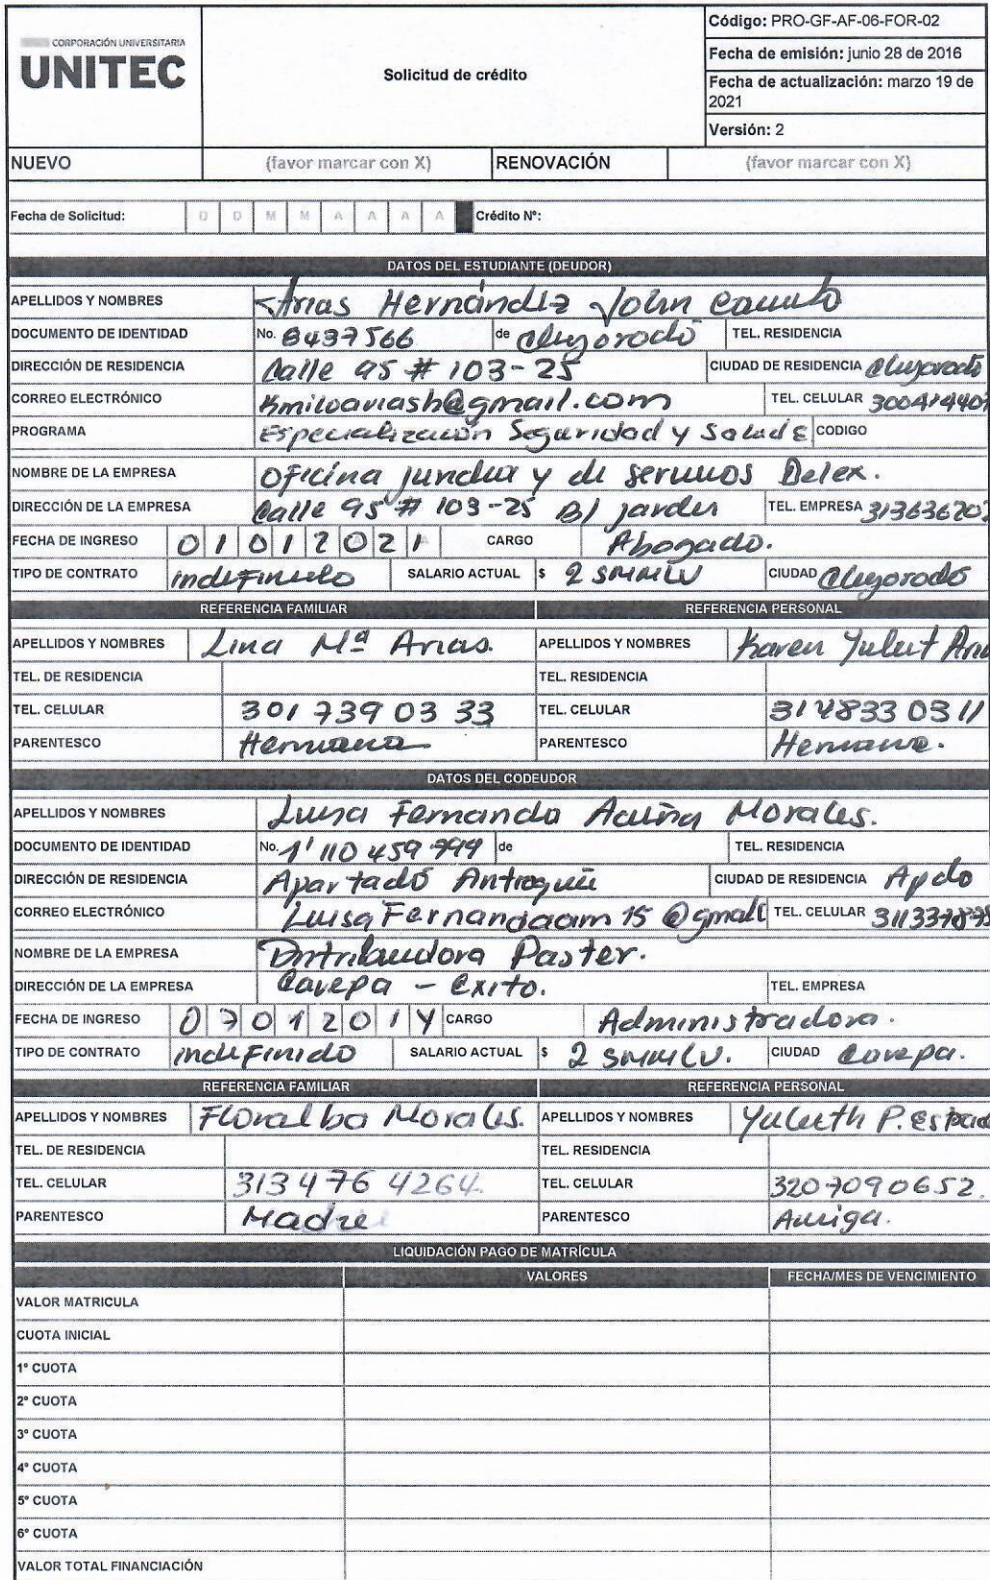 CORPORACIÓN UNIVERSITARIA
UNITEC
Solicitud de crédito
Código: PRO-GF-AF-06-FOR-02
Fecha de emisión: junio 28 de 2016
Fecha de actualización: marzo 19 de 2021
Versión: 2
NUEVO (favor marcar con X) RENOVACIÓN (favor marcar con X)
Fecha de Solicitud: D D M M A A A A Crédito N°:
DATOS DEL ESTUDIANTE (DEUDOR)
APELLIDOS Y NOMBRES Arias Hernández John Camilo
DOCUMENTO DE IDENTIDAD No. 8437566 de Chigorodó TEL. RESIDENCIA
DIRECCIÓN DE RESIDENCIA Calle 95 # 103-25 CIUDAD DE RESIDENCIA Chigorodó
CORREO ELECTRÓNICO Kmiloariash@gmail.com TEL. CELULAR 300414407
PROGRAMA Especialización Seguridad y Salud E CODIGO
NOMBRE DE LA EMPRESA Oficina juridica y de servicios Delex.
DIRECCIÓN DE LA EMPRESA Calle 95 # 103-25 B/ jardin TEL. EMPRESA 313636707
FECHA DE INGRESO 01012021 CARGO Abogado.
TIPO DE CONTRATO indefinido SALARIO ACTUAL $ 2 SMMLV CIUDAD Chigorodó
REFERENCIA FAMILIAR REFERENCIA PERSONAL
APELLIDOS Y NOMBRES Lina Mª Arias. APELLIDOS Y NOMBRES Karen Yuliet
TEL. DE RESIDENCIA TEL. RESIDENCIA
TEL. CELULAR 301 739 03 33 TEL. CELULAR 314833 0311
PARENTESCO Hermana PARENTESCO Hermana.
DATOS DEL CODEUDOR
APELLIDOS Y NOMBRES Luisa Fernanda Acuña Morales.
DOCUMENTO DE IDENTIDAD No. 1'110 459 999 de TEL. RESIDENCIA
DIRECCIÓN DE RESIDENCIA Apartadó Antioquia CIUDAD DE RESIDENCIA Apdo
CORREO ELECTRÓNICO LuisaFernandaam15@gmail TEL. CELULAR
NOMBRE DE LA EMPRESA Distribuidora Paster.
DIRECCIÓN DE LA EMPRESA Carepa - Exito. TEL. EMPRESA
FECHA DE INGRESO 07012014 CARGO Administradora.
TIPO DE CONTRATO indefinido SALARIO ACTUAL $ 2 SMMLV. CIUDAD Carepa.
REFERENCIA FAMILIAR REFERENCIA PERSONAL
APELLIDOS Y NOMBRES Floralba Morales. APELLIDOS Y NOMBRES Yulieth P.
TEL. DE RESIDENCIA TEL. RESIDENCIA
TEL. CELULAR 313 476 4264. TEL. CELULAR 3207090652.
PARENTESCO Madre PARENTESCO Amiga.
LIQUIDACIÓN PAGO DE MATRÍCULA
VALORES FECHA/MES DE VENCIMIENTO
VALOR MATRICULA
CUOTA INICIAL
1° CUOTA
2° CUOTA
3° CUOTA
4° CUOTA
5° CUOTA
6° CUOTA
VALOR TOTAL FINANCIACIÓN